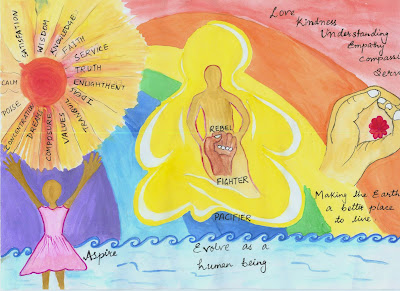 SATISFATION
WISDOM
KNOWLEDGE
FAITH
SERVICE
TRUTH
ENLIGHTMENT
TRANQUIL
VALUES
COMPOSURE
DREAMS
CONCENTRATION
POISE
CALM
Love
Kindness
Understanding
Empathy
Compassi
Servi
REBEL
FIGHTER
PACIFIER
Making the Earth
a better place
to live
Aspire
Evolve as a
human being